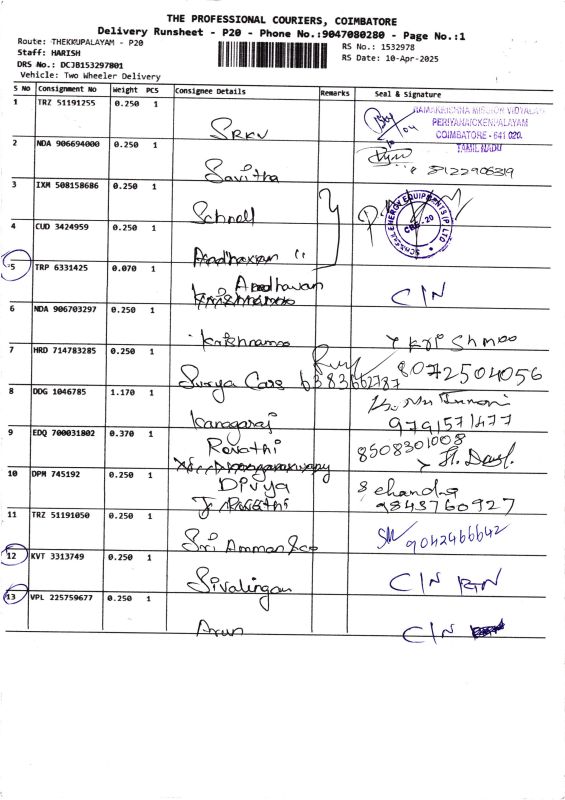 THE PROFESSIONAL COURIERS, COIMBATORE
Delivery Runsheet - P20 - Phone No.:9047080280 - Page No.:1
Route: THEKKUPALAYAM - P20
Staff: HARISH
DRS No.: DCJB153297801
Vehicle: Two Wheeler Delivery
RS No.: 1532978
RS Date: 10-Apr-2025
S No Consignment No Weight PCS Consignee Details Remarks Seal & Signature
1 TRZ 51191255 0.250 1 SRKV
RAMAKRISHNA MISSION VIDYALAYA
PERIYANAICKENPALAYAM
COIMBATORE - 641 020.
TAMIL NADU
2 NDA 906694000 0.250 1 Savitha 8122906319
3 IXM 508158686 0.250 1 Schnell
SCHNELL ENERGY EQUIPMENTS (P) LTD
CBE-20
4 CUD 3424959 0.250 1 Aadhavan "
5 TRP 6331425 0.070 1 Aadhavan C/N
6 NDA 906703297 0.250 1 Krishnamoo
7 HRD 714783285 0.250 1 Surya Cars 6383662787 8072504056
8 DDG 1046785 1.170 1 Kanagaraj 9791571477
9 EDQ 700031802 0.370 1 Revathi 8508301008
10 DPM 745192 0.250 1 Divya
Schandra
9843760927
11 TRZ 51191050 0.250 1 Sri Amman & co 9042466642
12 KVT 3313749 0.250 1 Sivalingan C/N RTN
13 VPL 225759677 0.250 1 Arun C/N